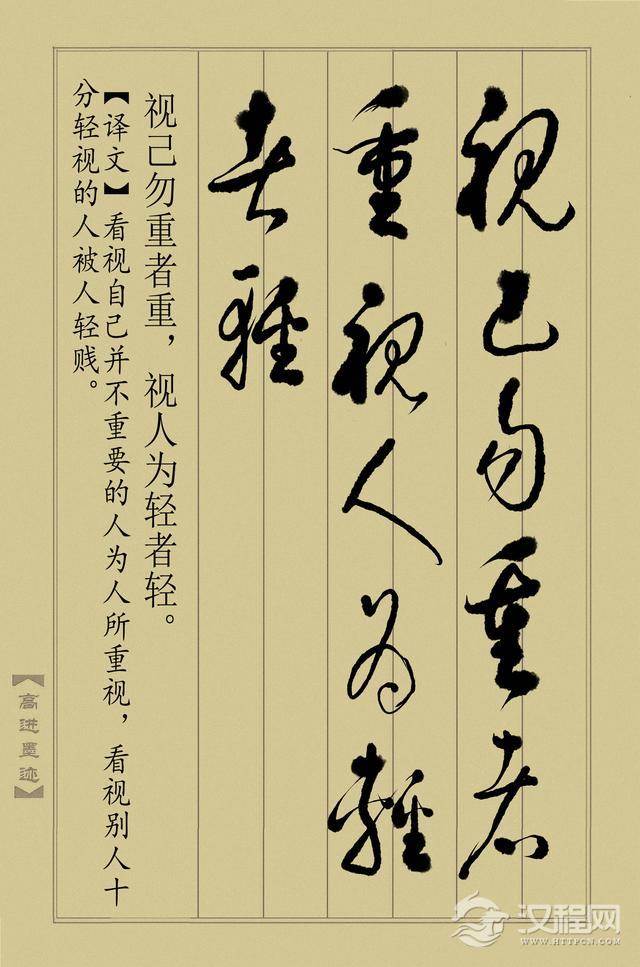 視己勿重者
重視人為輕
者輕
视己勿重者重，视人为轻者轻。
【译文】看视自己并不重要的人为人所重视，看视别人十
分轻视的人被人轻贱。
【高进墨迹】
汉程网
WWW.HTTPCN.COM